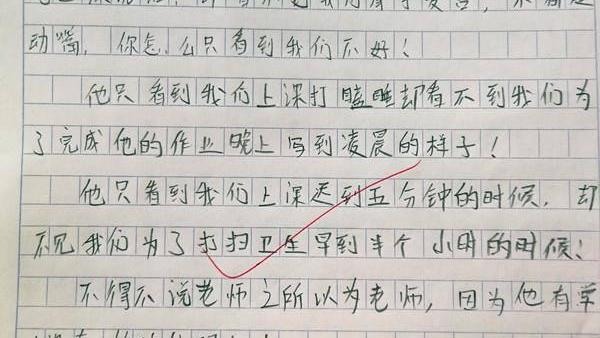 动嘴，你怎么只看到我们不好！
他只看到我们上课打瞌睡却看不到我们为
了完成他的作业晚上写到凌晨的样子！
他只看到我们上课迟到五分钟的时候，却
不见我们为了打扫卫生早到半个小时的时候！
不得不说老师之所以为老师，因为他有学